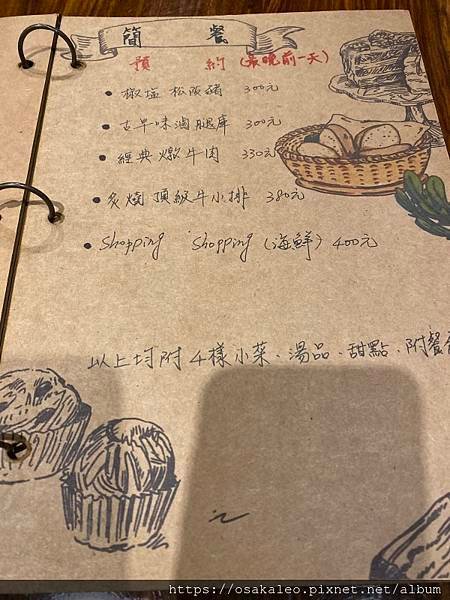 簡 餐
預 約 (最晚前一天)
• 椒塩 松阪豬 300元
• 古早味滷腿庫 300元
• 經典燉牛肉 330元
• 炙燒頂級牛小排 380元
• Shopping Shopping (海鮮) 400元
以上均附 4樣小菜、湯品、甜點、附餐
https://osakaleo.pixnet.net/album